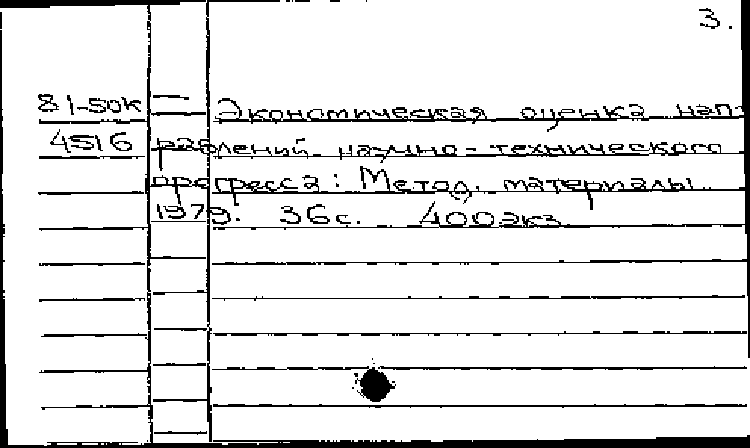 3.
81-50к — Экономическая оценка нап-
4516 равлений научно-технического
прогресса: Метод. материалы.
1979. 36с. 400экз.